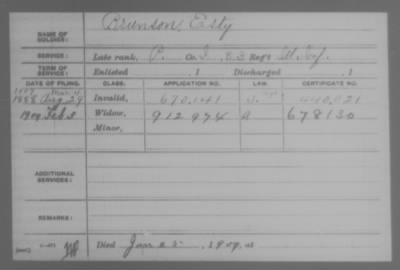 NAME OF SOLDIER: Brunson, Esly
SERVICE: Late rank, P. Co. I, 83 Reg't Ill. Inf.
TERM OF SERVICE: Enlisted , 1 Discharged , 1
DATE OF FILING. CLASS. APPLICATION NO. LAW. CERTIFICATE NO.
1888 Aug 29 Invalid, 670,141 440,821
1909 Feb 3 Widow, 912974 678130
Minor,
ADDITIONAL SERVICES:
REMARKS:
Died Jan 25, 1909, at